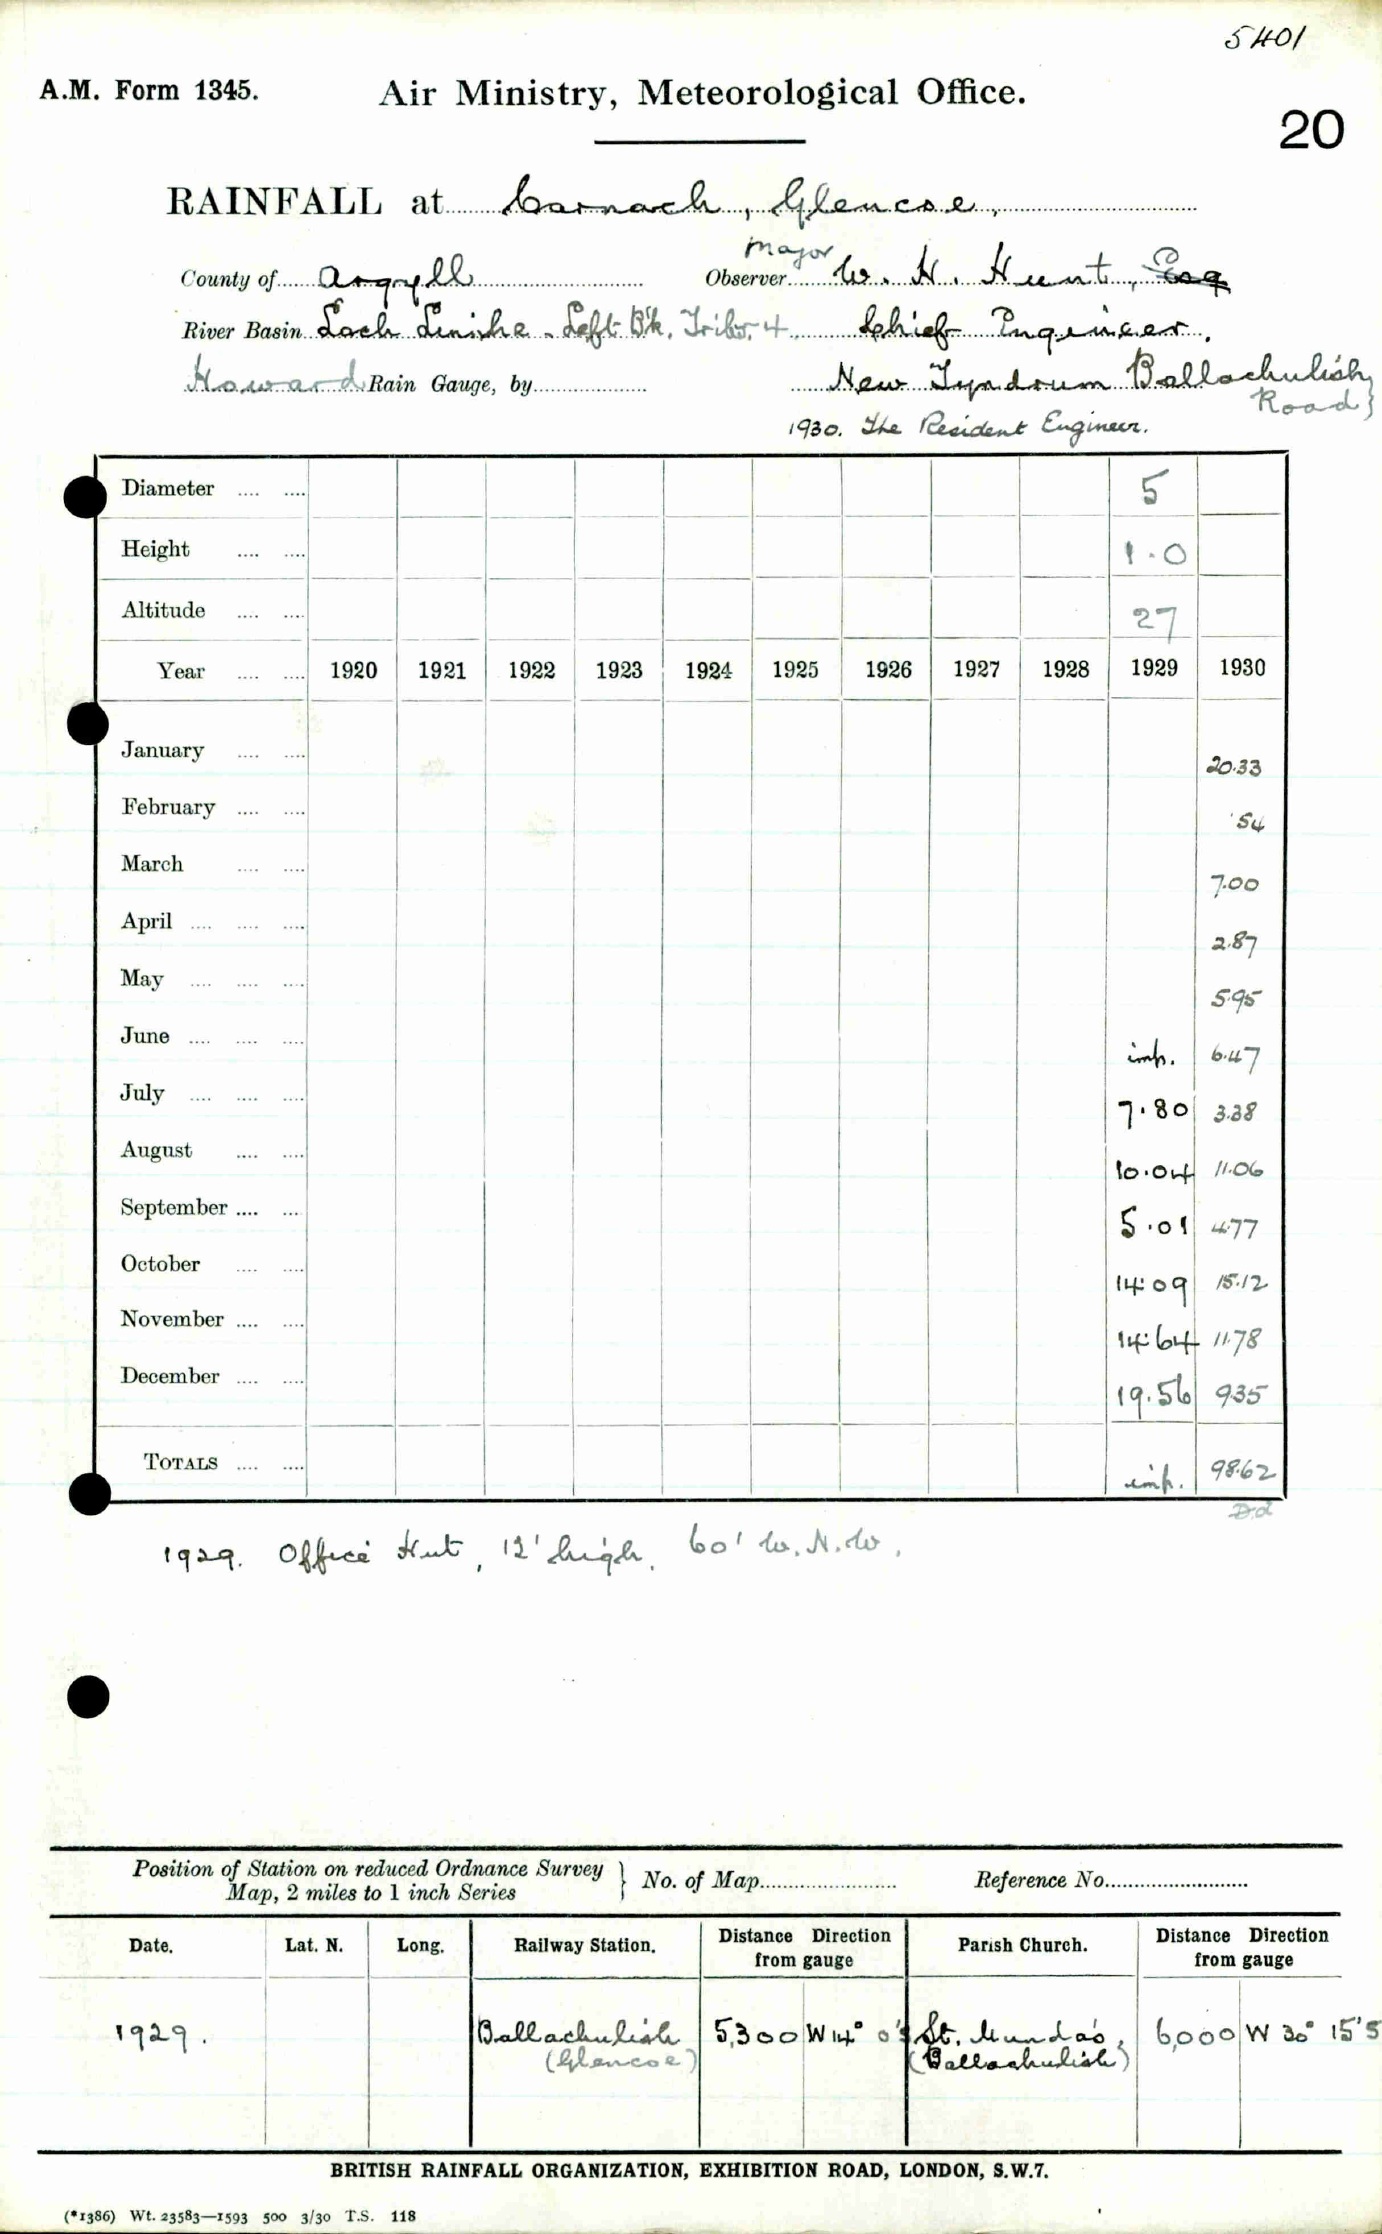 5401
A.M. Form 1345. Air Ministry, Meteorological Office.
20
RAINFALL at Carnach, Glencoe,
Major
County of Argyll Observer W. H. Hunt, Esq
River Basin Loch Linnhe - Left Bk. Trib. 4 Chief Engineer.
Howard Rain Gauge, by New Tyndrum Ballachulish
Road}
1930. The Resident Engineer.
Diameter .... .... 5
Height .... .... 1.0
Altitude .... .... 27
Year .... .... 1920 1921 1922 1923 1924 1925 1926 1927 1928 1929 1930
January .... .... 20.33
February .... .... .54
March .... .... 7.00
April .... .... .... 2.87
May .... .... .... 5.95
June .... .... .... imp. 6.47
July .... .... .... 7.80 3.38
August .... .... 10.04 11.06
September .... .... 5.01 4.77
October .... .... 14.09 15.12
November .... .... 14.64 11.78
December .... .... 19.56 9.35
TOTALS .... .... imp. 98.62
1929. Office Hut, 12' high. 60' W.N.W.
Position of Station on reduced Ordnance Survey } No. of Map Reference No.
Map, 2 miles to 1 inch Series
Date. Lat. N. Long. Railway Station. Distance Direction Parish Church. Distance Direction
from gauge from gauge
1929. Ballachulish 5,300 W 14° 0's St. Munda's, 6,000 W 30° 15's
(Glencoe) (Ballachulish)
BRITISH RAINFALL ORGANIZATION, EXHIBITION ROAD, LONDON, S.W.7.
(*1386) Wt. 23583—1593 500 3/30 T.S. 118